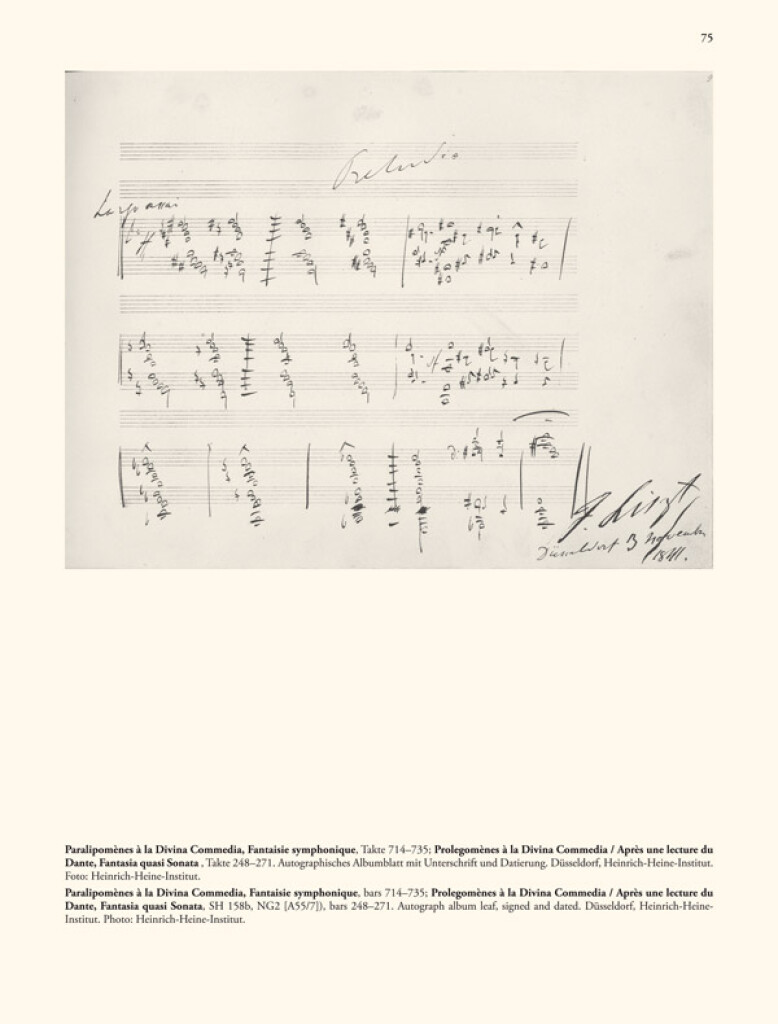 75
Preludio
Largo assai
ff
F. Liszt
Düsseldorf 3 November
1841.
Paralipomènes à la Divina Commedia, Fantaisie symphonique, Takte 714–735; Prolegomènes à la Divina Commedia / Après une lecture du
Dante, Fantasia quasi Sonata , Takte 248–271. Autographisches Albumblatt mit Unterschrift und Datierung. Düsseldorf, Heinrich-Heine-Institut.
Foto: Heinrich-Heine-Institut.
Paralipomènes à la Divina Commedia, Fantaisie symphonique, bars 714–735; Prolegomènes à la Divina Commedia / Après une lecture du
Dante, Fantasia quasi Sonata, SH 158b, NG2 [A55/7]), bars 248–271. Autograph album leaf, signed and dated. Düsseldorf, Heinrich-Heine-
Institut. Photo: Heinrich-Heine-Institut.